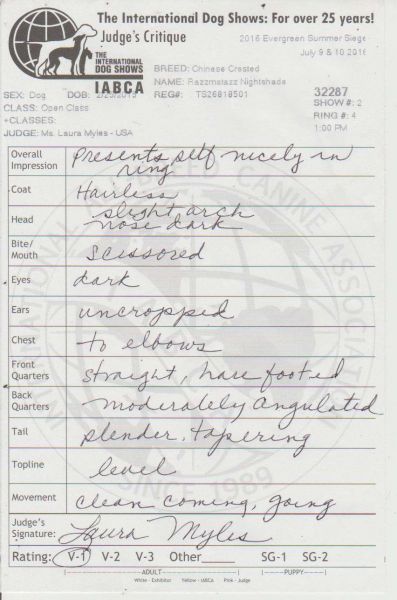 The International Dog Shows: For over 25 years!
Judge's Critique
2016 Evergreen Summer Siege
July 9 & 10 2016
THE INTERNATIONAL DOG SHOWS
IABCA
BREED: Chinese Crested
NAME: Razzmatazz Nightshade
SEX: Dog DOB: 2/25/2015 REG#: TS26818501
32287
CLASS: Open Class
SHOW #: 2
+CLASSES:
RING #: 4
JUDGE: Ms. Laura Myles - USA
1:00 PM
Overall Impression Presents self nicely in ring
Coat Hairless
Head slight arch
nose dark
Bite/Mouth scissored
Eyes dark
Ears uncropped
Chest to elbows
Front Quarters straight, hare footed
Back Quarters moderately angulated
Tail slender, tapering
Topline level
Movement clean coming, going
Judge's Signature: Laura Myles
Rating: V-1 V-2 V-3 Other SG-1 SG-2
ADULT PUPPY
White - Exhibitor Yellow - IABCA Pink - Judge
INTERNATIONAL ALL BREED CANINE ASSOCIATION
SINCE 1989